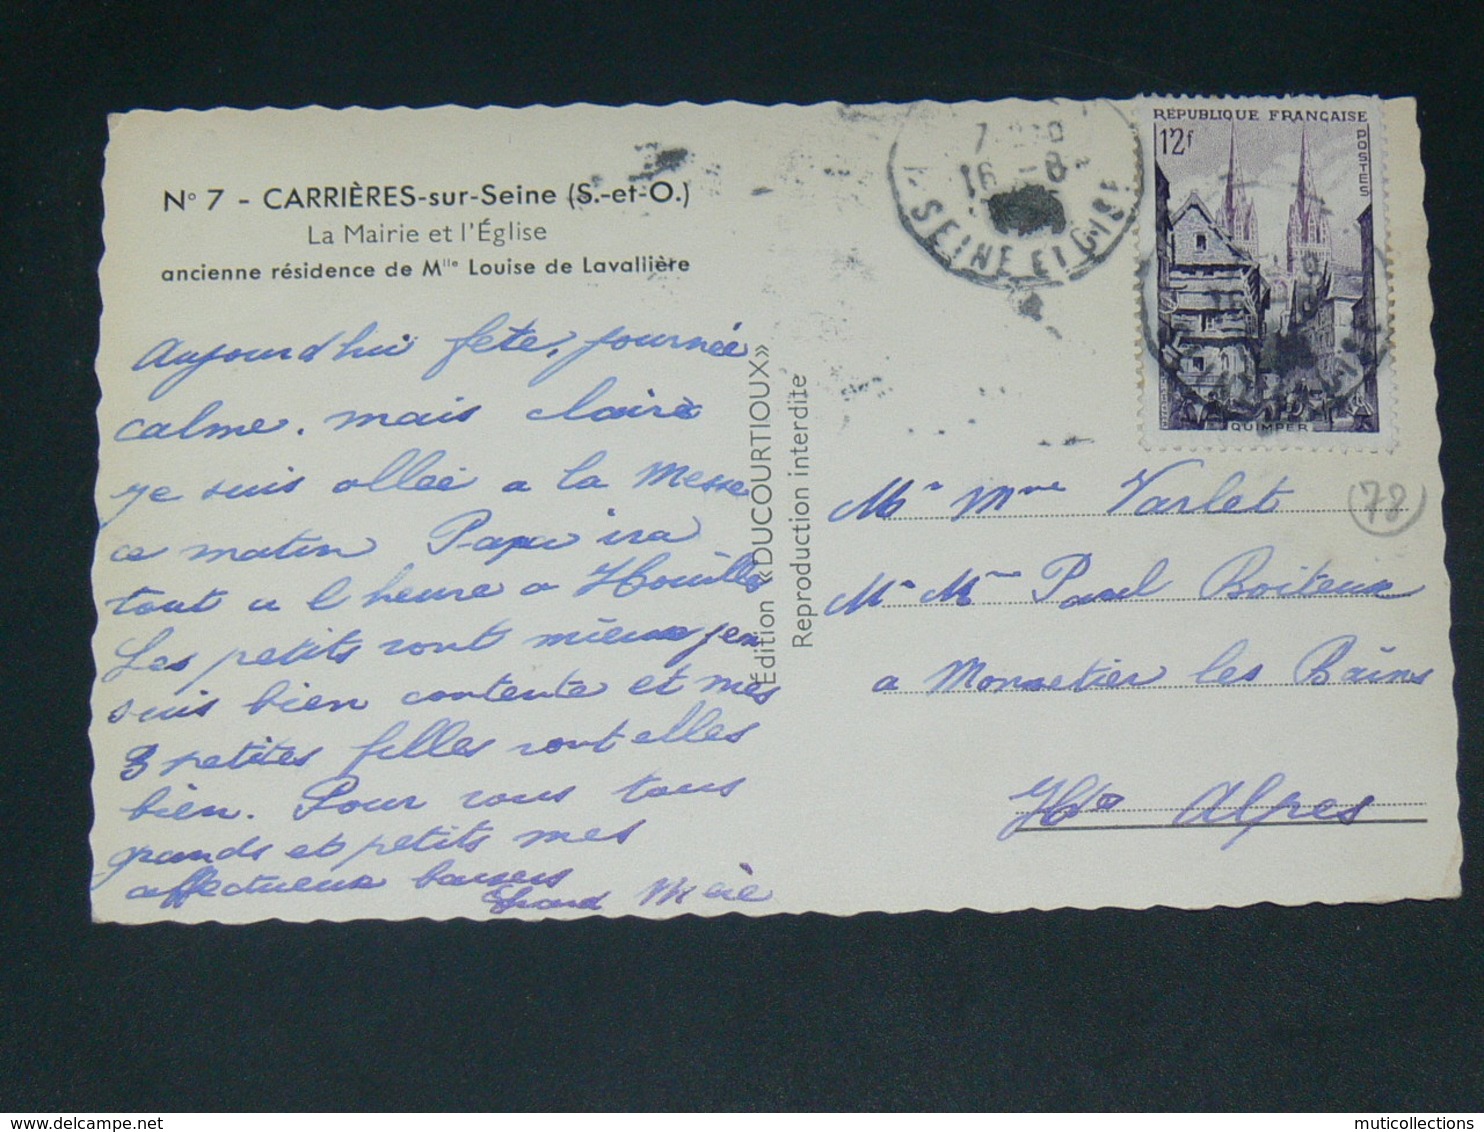 N° 7 - CARRIÈRES-sur-Seine (S.-et-O.)
La Mairie et l'Église
ancienne résidence de Mlle Louise de Lavallière
Aujourd'hui fête, journée
calme, mais claire
je suis allée a la Messe
ce matin Papa ira
tout a l heure a Houilles
Les petits vont mieux j'en
suis bien contente et mes
3 petites filles vont elles
bien. Pour vous tous
grands et petits mes
affectueux baisers
Grand Mère
Édition «DUCOURTIOUX»
Reproduction interdite
16 -8
SEINE ET OISE
RÉPUBLIQUE FRANÇAISE
12f
POSTES
QUIMPER
78
Mr Mme Varlet
Mr Mme Paul Boiteux
a Monnetier les Bains
Htes Alpes
http://www.delcampe.net
muticollections